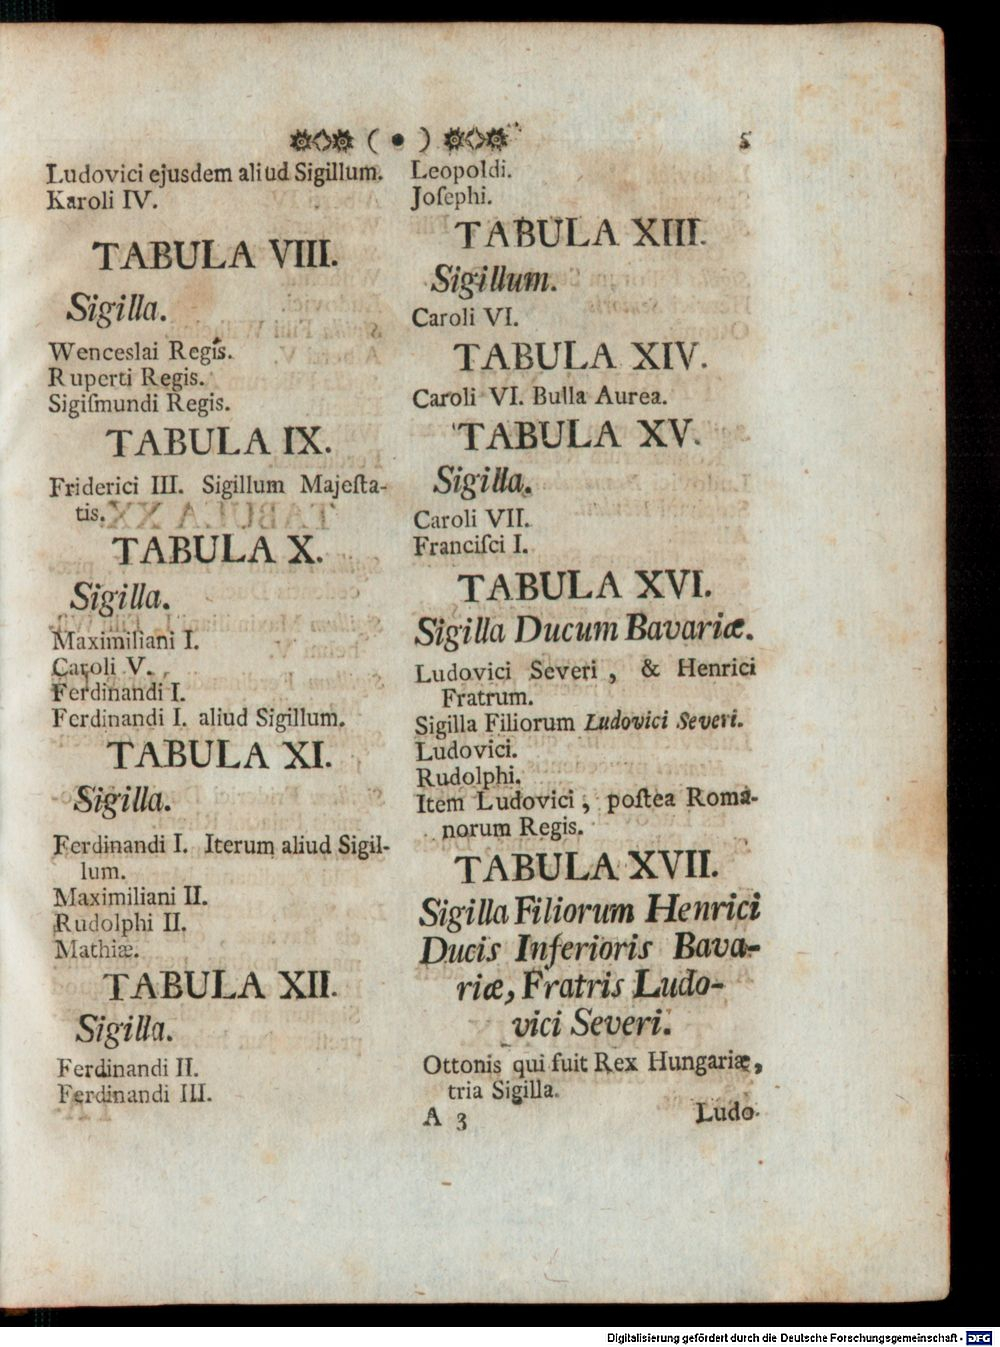 ( • ) 5
Ludovici ejusdem aliud Sigillum.
Karoli IV.
TABULA VIII.
Sigilla.
Wenceslai Regis.
Ruperti Regis.
Sigiſmundi Regis.
TABULA IX.
Friderici III. Sigillum Majeſta-
tis.
TABULA X.
Sigilla.
Maximiliani I.
Caroli V.
Ferdinandi I.
Ferdinandi I. aliud Sigillum.
TABULA XI.
Sigilla.
Ferdinandi I. Iterum aliud Sigil-
lum.
Maximiliani II.
Rudolphi II.
Mathiæ.
TABULA XII.
Sigilla.
Ferdinandi II.
Ferdinandi III.
Leopoldi.
Joſephi.
TABULA XIII.
Sigillum.
Caroli VI.
TABULA XIV.
Caroli VI. Bulla Aurea.
TABULA XV.
Sigilla.
Caroli VII.
Franciſci I.
TABULA XVI.
Sigilla Ducum Bavariæ.
Ludovici Severi, & Henrici
Fratrum.
Sigilla Filiorum Ludovici Severi.
Ludovici.
Rudolphi.
Item Ludovici, poſtea Roma-
norum Regis.
TABULA XVII.
Sigilla Filiorum Henrici
Ducis Inferioris Bava-
riæ, Fratris Ludo-
vici Severi.
Ottonis qui fuit Rex Hungariæ,
tria Sigilla.
A 3 Ludo-
Digitalisierung gefördert durch die Deutsche Forschungsgemeinschaft - DFG